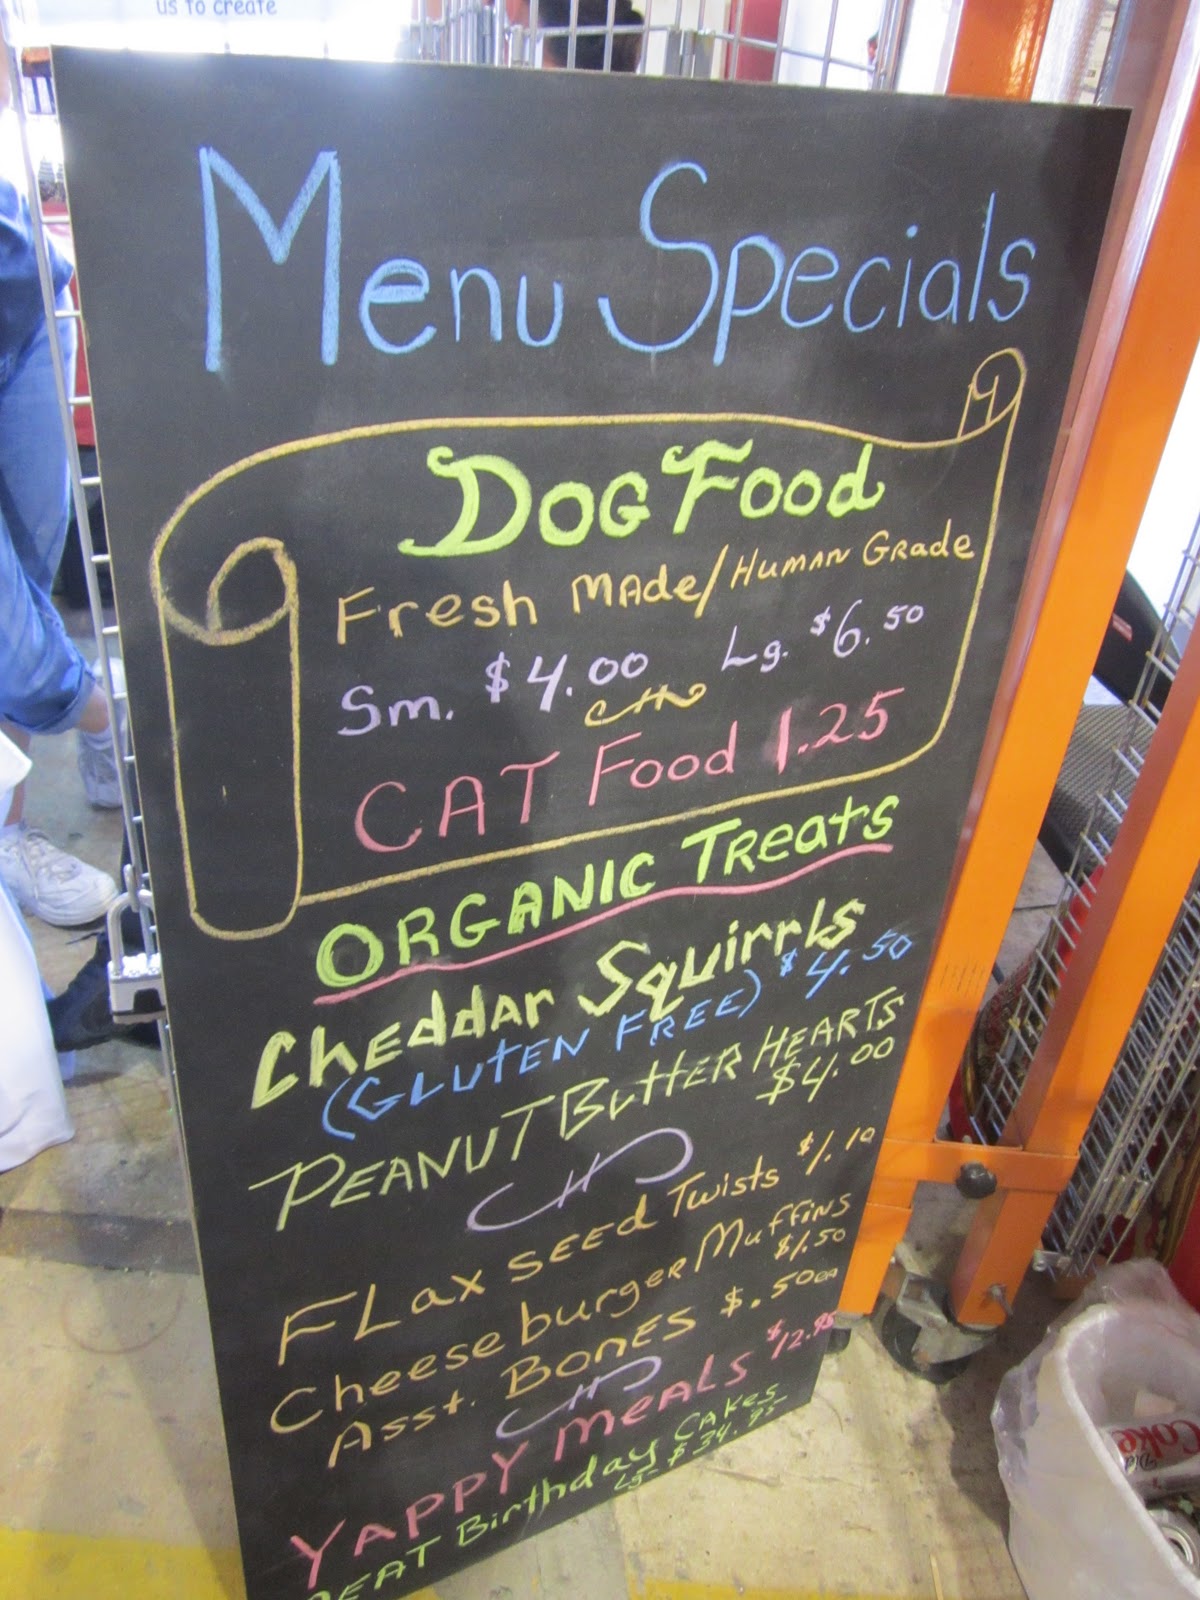 us to create
Menu Specials
Dog Food
Fresh Made/Human Grade
Sm. $4.00 Lg. $6.50
CAT Food 1.25
ORGANIC Treats
Cheddar Squirrls
(GLUTEN FREE) $4.50
PEANUT Butter HEARTS
$4.00
FLax SEED Twists $1.10
Cheeseburger Muffins
$1.50
Asst. BONES $.50 ea
YAPPY MEALS $12.95
Birthday CAKES
Lg- $34.95
Diet
Coke